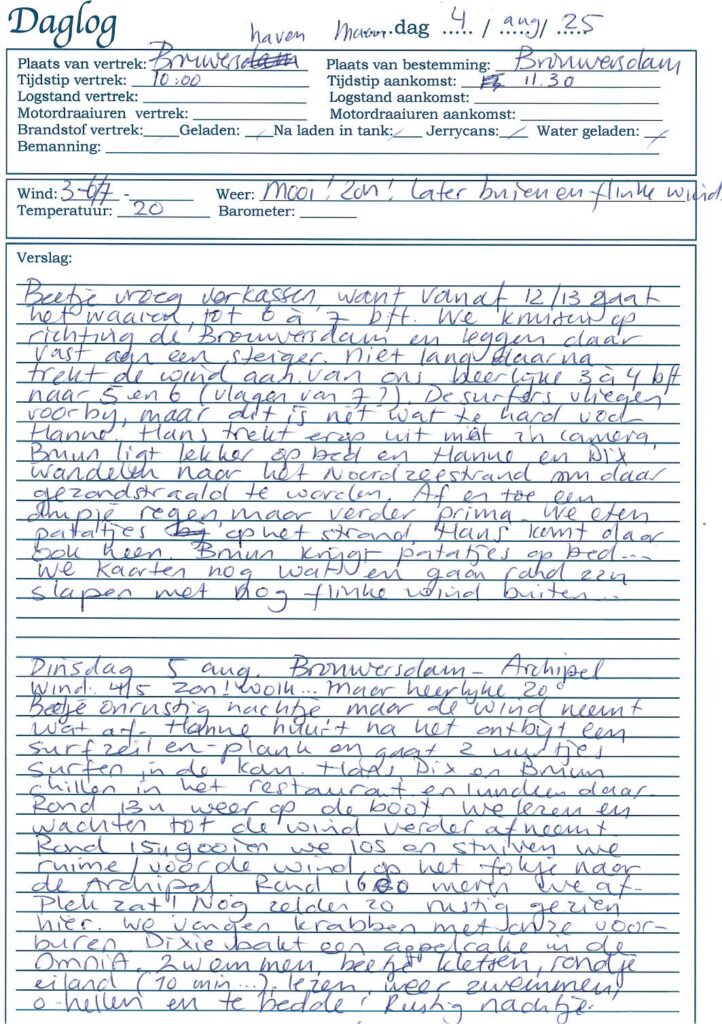 Daglog
haven Maandag 4 / aug / 25
Plaats van vertrek: Brouwersdam Plaats van bestemming: Brouwersdam
Tijdstip vertrek: 10:00 Tijdstip aankomst: 11.30
Logstand vertrek: Logstand aankomst:
Motordraaiuren vertrek: Motordraaiuren aankomst:
Brandstof vertrek: Geladen: Na laden in tank: Jerrycans: Water geladen:
Bemanning:
Wind: 3-6/7 - Weer: Mooi! Zon! Later buien en flinke wind.
Temperatuur: 20 Barometer:
Verslag:
Beetje vroeg verkassen, want vanaf 12/13 gaat
het waaien, tot 6 à 7 bft. We kruisen op
richting de Brouwersdam en leggen daar
vast aan een steiger. Niet lang daarna
trekt de wind aan van ons heerlijke 3 à 4 bft
naar 5 en 6 (vlagen van 7?). De surfers vliegen
voorby, maar dit is nét wat te hard voor
Hanne. Hans trekt erop uit met z'n camera,
Bruun ligt lekker op bed en Hanne en Dix
wandelen naar het Noordzeestrand om daar
gezandstraald te worden. Af en toe een
drupje regen, maar verder prima. We eten
patatjes op het strand, Hans komt daar
ook heen. Bruun krijgt patatjes op bed...
We kaarten nog wat en gaan rond zzn
slapen met nog flinke wind buiten...
Dinsdag 5 aug. Brouwersdam - Archipel
Wind: 4/5 Zon! Wolk... Maar heerlijke 20°
Beetje onrustig nachtje maar de wind neemt
wat af. Hanne huurt na het ontbijt een
surfzeil en -plank en gaat 2 uurtjes
surfen in de kom. Hans Dix en Bruun
chillen in het restaurant en lunchen daar.
Rond 13u weer op de boot we lezen en
wachten tot de wind verder afneemt
Rond 15u gooien we los en stuiven we
ruime/voor de wind op het fokje naar
de Archipel. Rond 1600 meren we af.
Plek zat! Nog zelden zo rustig gezien
hier. We vangen krabben met onze voor-
buren. Dixie bakt een appelcake in de
Omnia. Zwemmen, beetje kletsen, rondje
eiland (10 min...), lezen, weer zwemmen,
o-hellen en te bedde! Rustig nachtje.